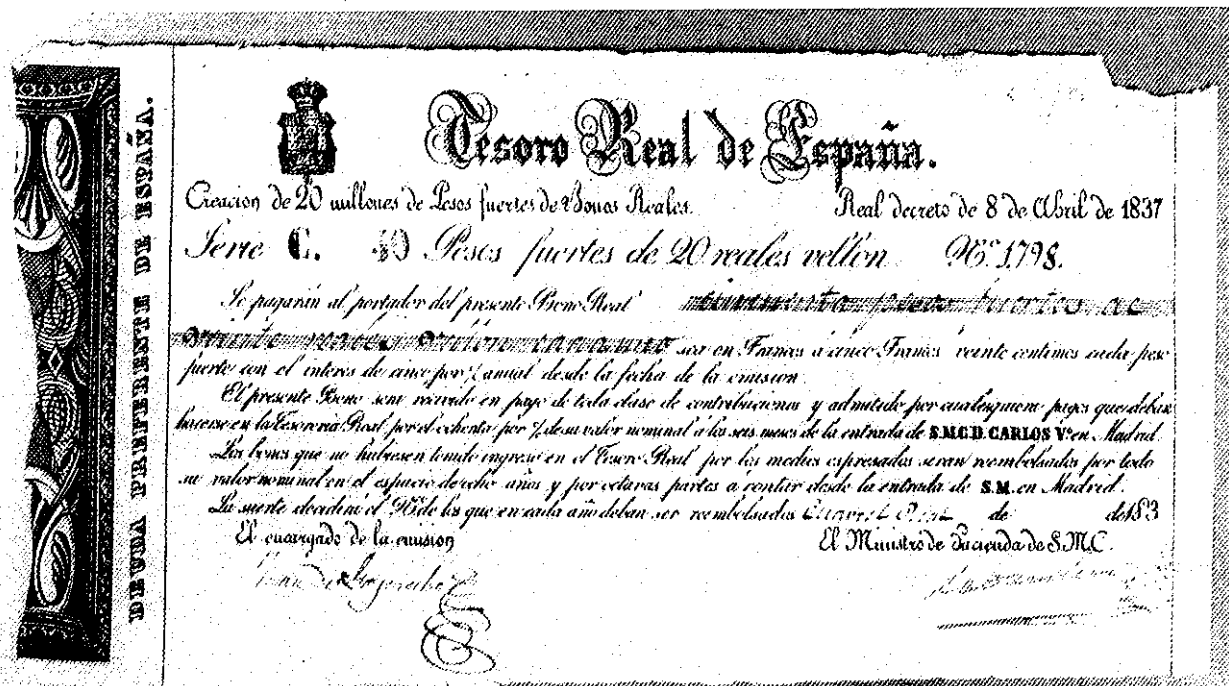 DEUDA PREFERENTE DE ESPAÑA.
Tesoro Real de España.
Creacion de 20 millones de Pesos fuertes de Bonos Reales. Real decreto de 8 de Abril de 1837
Serie C. 40 Pesos fuertes de 20 reales vellon Nº 1798.
Se pagarán al portador del presente Bono Real pesos fuertes de
veinte reales vellon cada uno sea en Francos a cinco Francos veinte centimos cada peso
fuerte con el interes de cinco por % anual desde la fecha de la emision.
El presente Bono será recivido en pago de toda clase de contribuciones y admitido por cualesquiera pagos que deban
hacerse en la Tesoreria Real por el ochenta por % de su valor nominal á los seis meses de la entrada de S.M.C.D. CARLOS Vº en Madrid.
Los bonos que no hubiesen tenido ingreso en el Tesoro Real por los medios espresados seran reembolsados por todo
su valor nominal en el espacio de ocho años y por octavas partes a contar desde la entrada de S.M. en Madrid.
La suerte decidirá el Nº de los que en cada año deban ser reembolsados Cuartel Real de de 183
El encargado de la emision El Ministro de Hacienda de S.M.C.